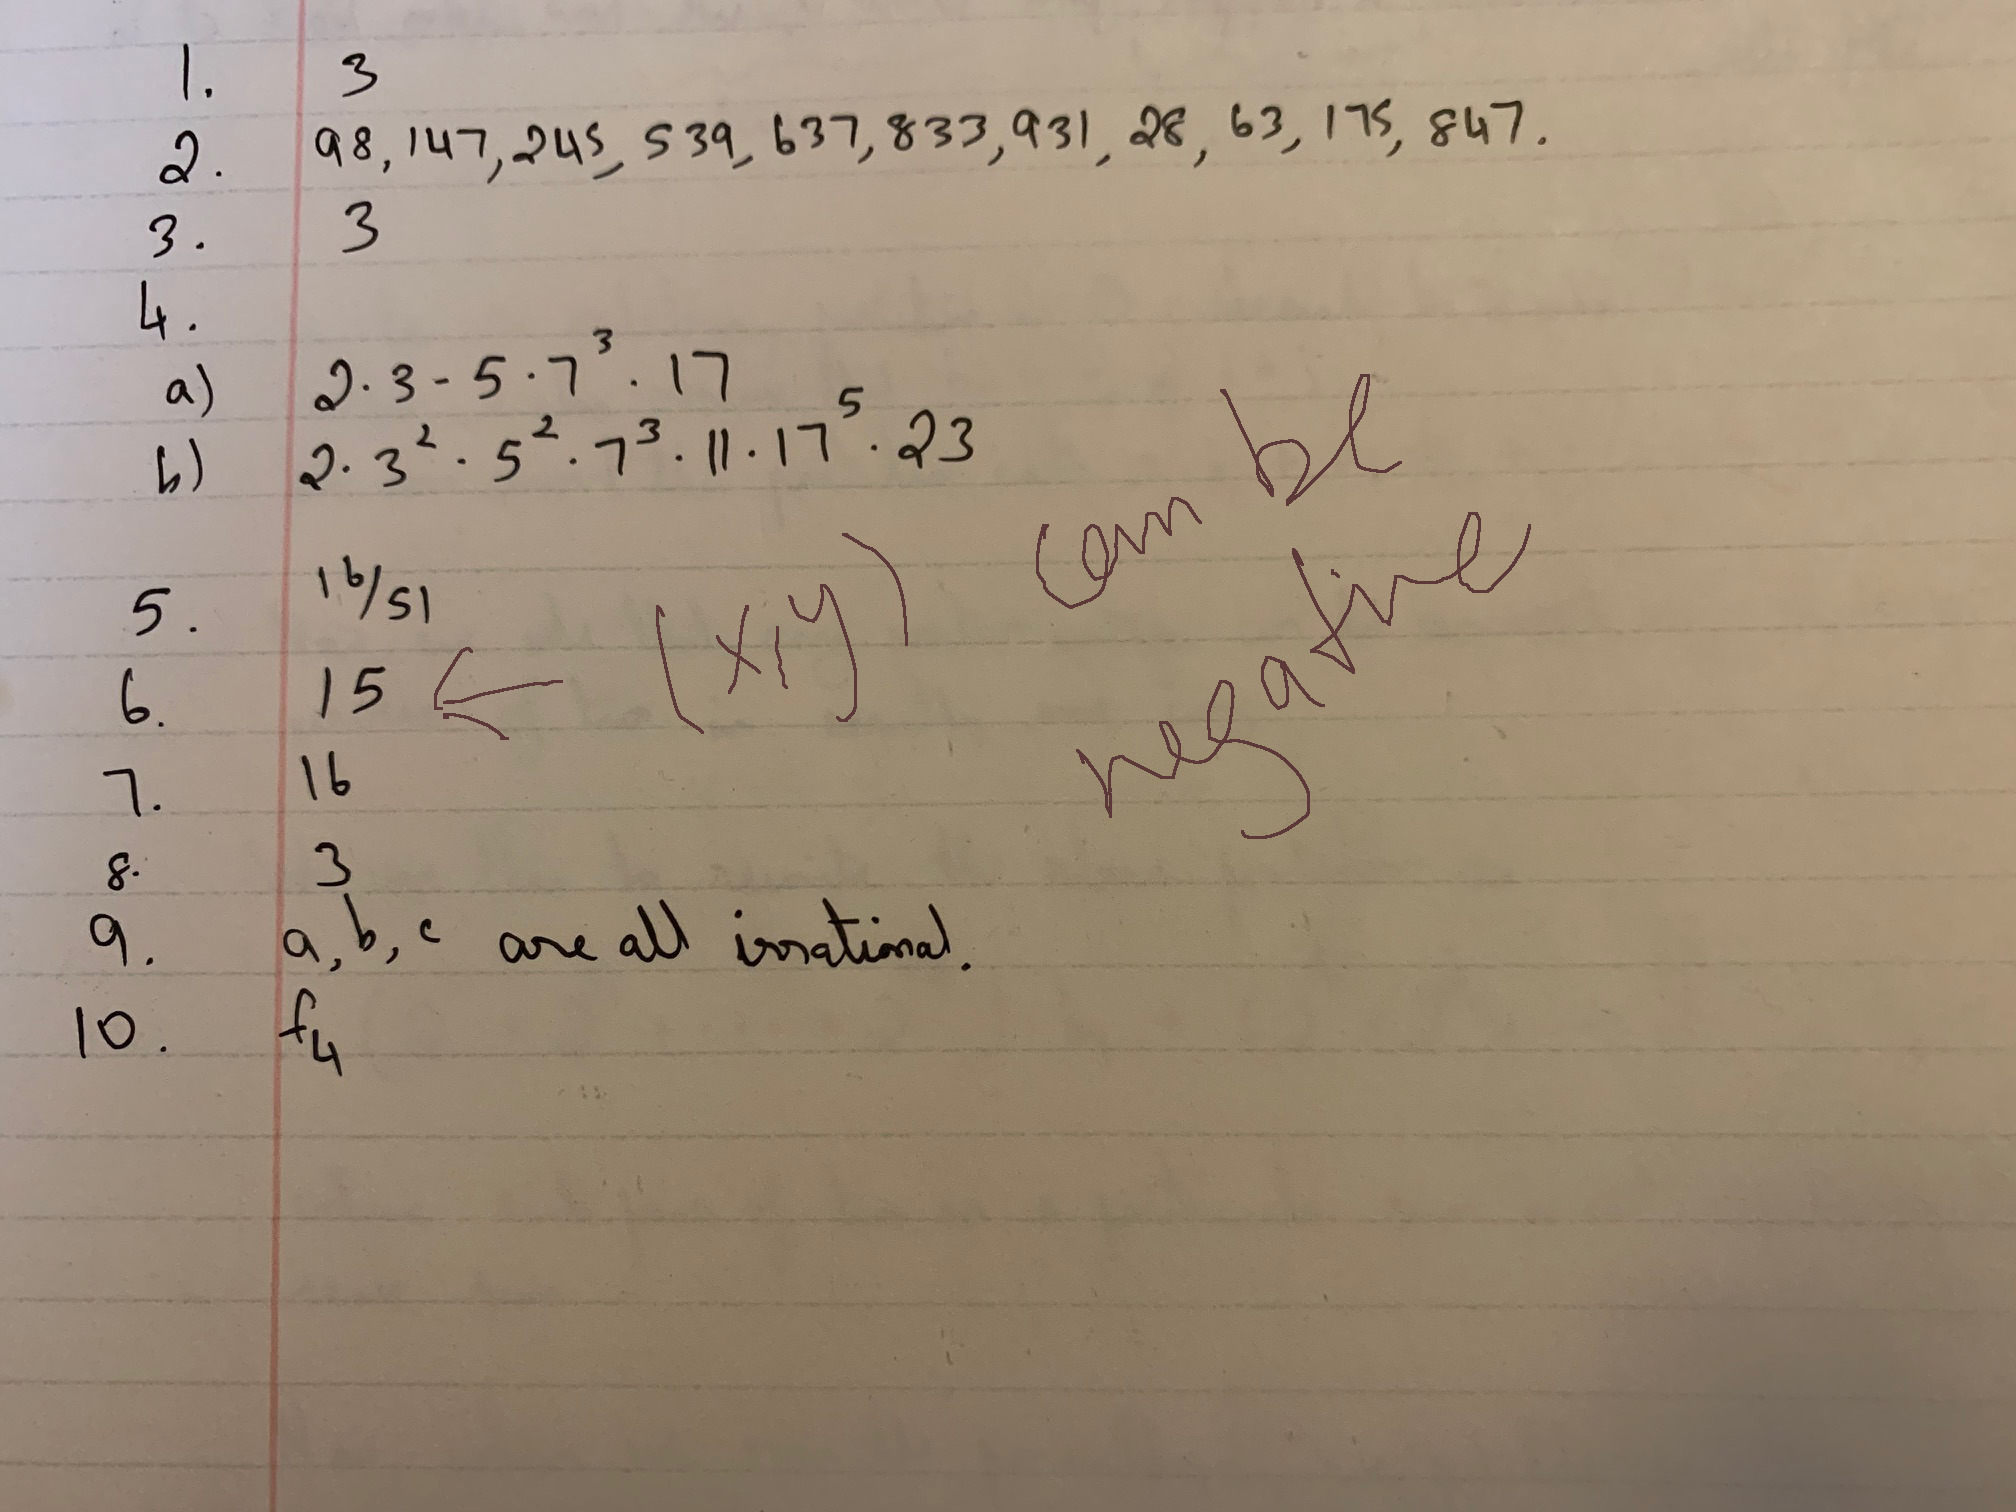 1. 3
2. 98, 147, 245, 539, 637, 833, 931, 28, 63, 175, 847.
3. 3
4.
a) 2·3-5·7³·17
b) 2·3²·5²·7³·11·17⁵·23
5. 16/51
6. 15 ← (x,y) can be negative
7. 16
8. 3
9. a, b, c are all irrational.
10. f₄